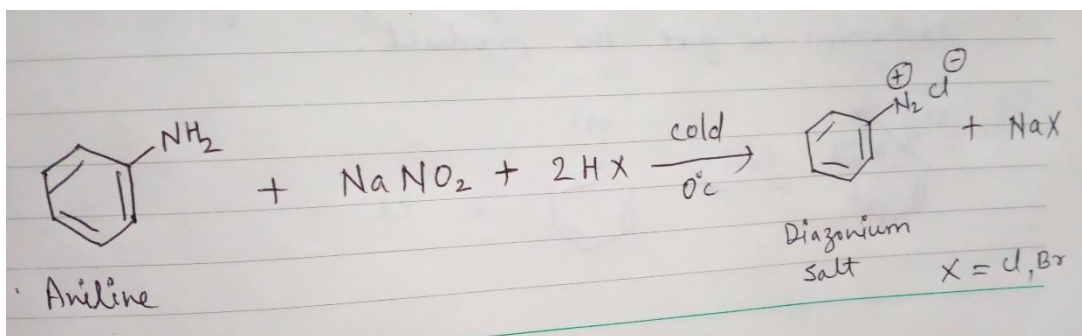 NH₂ + NaNO₂ + 2HX cold 0°c → N₂⊕ Cl⊖ + NaX
Aniline
Diazonium
salt
X = Cl, Br